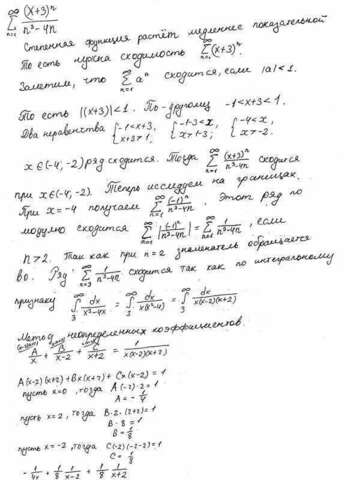 ∞∑n=1 (x+3)ⁿ/(n³-4n)
Степенная функция растёт медленнее показательной
То есть нужна сходимость ∞∑n=1 (x+3)ⁿ.
Заметим, что ∞∑n=1 aⁿ сходится, если |a|<1.
То есть |(x+3)|<1. По-другому -1<x+3<1.
Два неравенства {-1<x+3, x+3<1. {-1-3<x, x>1-3; {-4<x, x>-2.
x∈(-4,-2) ряд сходится. Тогда ∞∑n=1 (x+3)ⁿ/(n³-4n) сходится
при x∈(-4,-2). Теперь исследуем на границах.
При x=-4 получаем ∞∑n=1 (-1)ⁿ/(n³-4n). Этот ряд по
модулю сходится ∞∑n=1 |(-1)ⁿ/(n³-4n)| = ∞∑n=1 1/(n³-4n), если
n>2. Так как при n=2 знаменатель обращается
в 0. Ряд ∞∑n=3 1/(n³-4n) сходится так как по интегральному
признаку ∞∫3 dx/(x³-4x) = ∞∫3 dx/(x(x²-4)) = ∞∫3 dx/(x(x-2)(x+2))
Метод неопределенных коэффициентов.
A/x + B/(x-2) + C/(x+2) = 1/(x(x-2)(x+2))
A(x-2)(x+2)+Bx(x+2)+Cx(x-2)=1
пусть x=0, тогда A(-2)·2=1
A=-1/4
пусть x=2, тогда B·2·(2+2)=1
B·8=1
B=1/8
пусть x=-2, тогда C(-2)(-2-2)=1
C=1/8
-1/4x + 1/8 1/(x-2) + 1/8 1/(x+2)